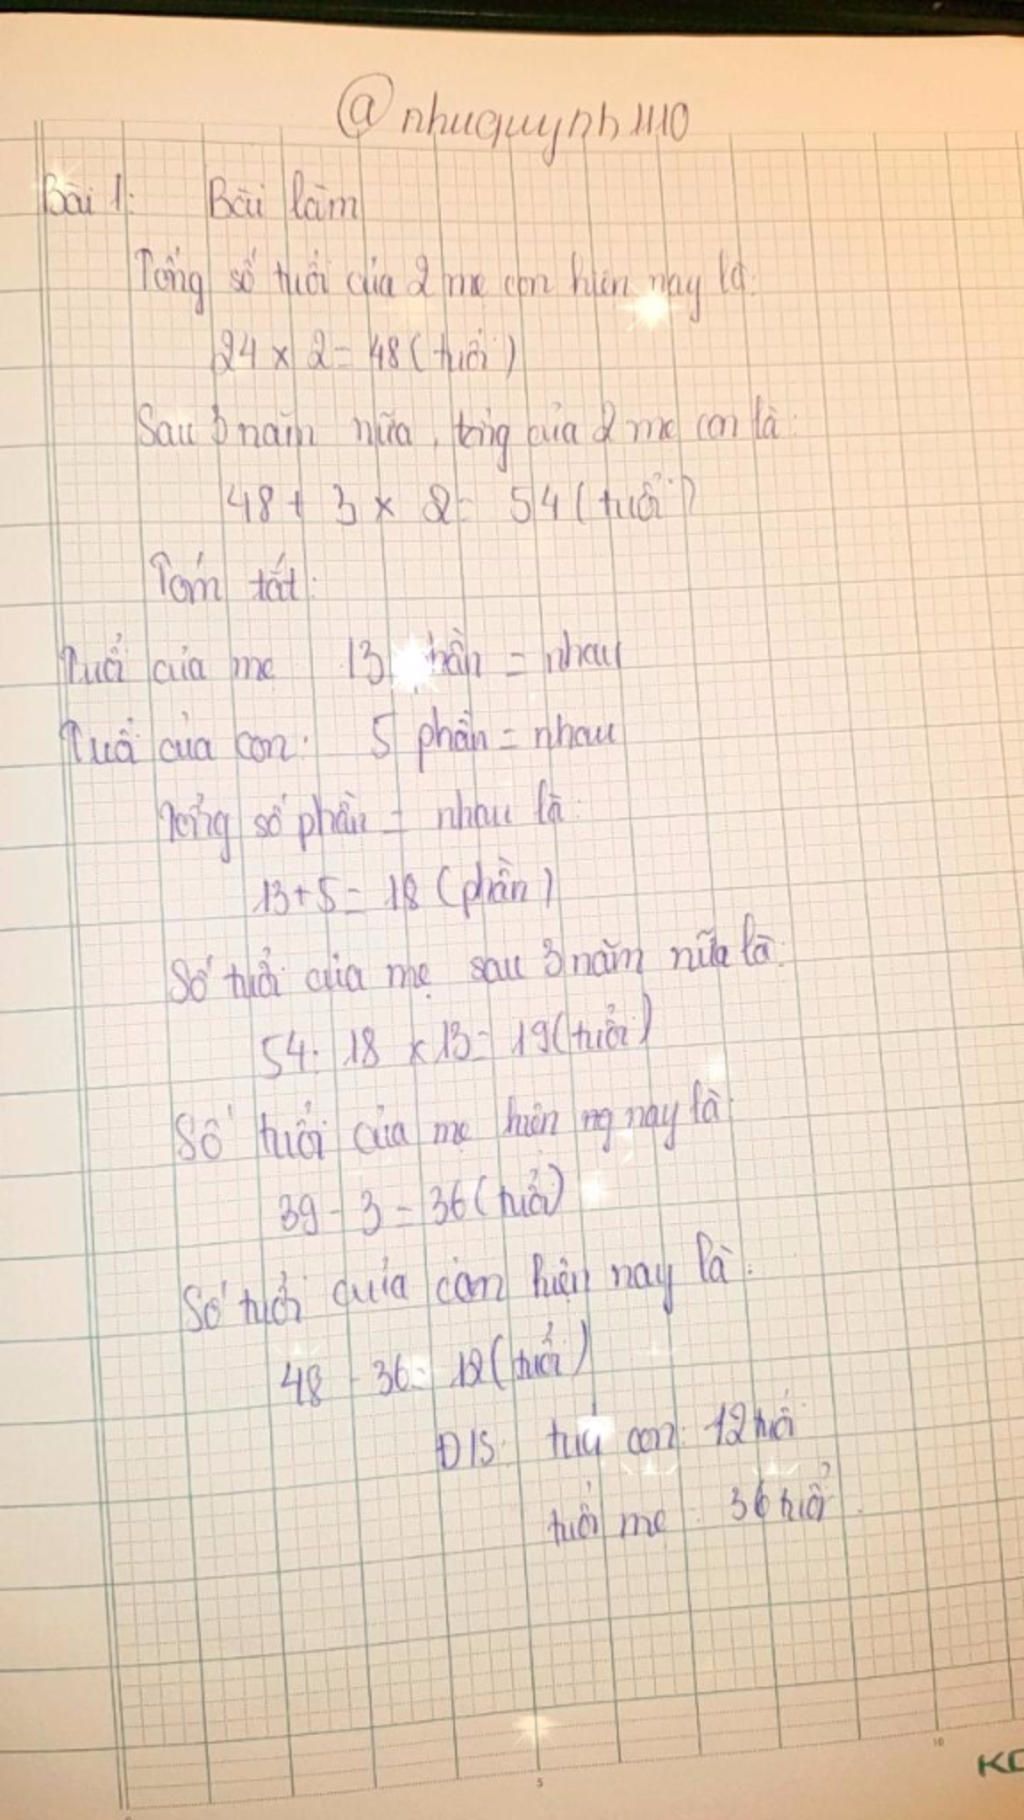 @nhuquynh1110
Bài 1: Bài làm
Tổng số tuổi của 2 mẹ con hiện nay là:
24 x 2 = 48 (tuổi)
Sau 3 năm nữa, tổng của 2 mẹ con là:
48 + 3 x 2 = 54 (tuổi)
Tóm tắt:
Tuổi của mẹ 13 phần = nhau
Tuổi của con: 5 phần = nhau
Tổng số phần = nhau là:
13 + 5 = 18 (phần)
Số tuổi của mẹ sau 3 năm nữa là:
54 : 18 x 13 = 19 (tuổi)
Số tuổi của mẹ hiện ng nay là:
39 - 3 = 36 (tuổi)
Số tuổi của con hiện nay là:
48 - 36 = 12 (tuổi)
Đ/S: tuổi con: 12 tuổi
tuổi mẹ: 36 tuổi.
5
10